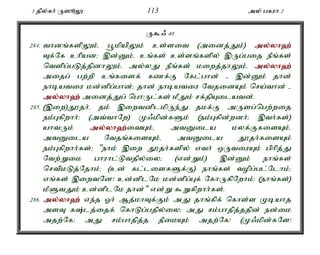 3 தில்கர் ருஸூலு 113 அல் பகரா 2
ருகூஃ 40
284. வானங்களிலும், பூமியிலும் உள்ளவை (அனைத்தும்) அல்லாஹ்
வுக்கே உரியன; இன்னும், உங்கள் உள்ளங்களில் இருப்பதை நீங்கள்
வெளிப்படுத்தினாலும், அல்லது நீங்கள் மறைத்தாலும், அல்லாஹ்
அதைப் பற்றி உங்களைக் கணக்கு கேட்பான் - இன்னும் தான்
நாடியவரை மன்னிப்பான்; தான் நாடியவரை வேதனையும் செய்வான் -
அல்லாஹ் அனைத்துப் பொருட்கள் மீதும் சக்தியுடையவன்.
285. (இறை)தூதர், தம் இறைவனிடமிருந்து தமக்கு அருளப்பெற்றதை
நம்புகிறார்; (அவ்வாறே) முஃமின்களும் (நம்புகின்றனர்; இவர்கள்)
யாவரும் அல்லாஹ்வையும், அவனுடைய மலக்குகளையும்,
அவனுடைய வேதங்களையும், அவனுடைய தூதர்களையும்
நம்புகிறார்கள்; "நாம் இறை தூதர்களில் எவர் ஒருவரையும் பிரித்து
வேற்றுமை பாராட்டுவதில்லை; (என்றும்) இன்னும் நாங்கள்
செவிமடுத்தோம்; (உன் கட்டளைகளுக்கு) நாங்கள் வழிப்பட்டோம்;
எங்கள் இறைவனே! உன்னிடமே மன்னிப்புக் கோருகிறோம்; (நாங்கள்)
மீளுவதும் உன்னிடமே தான்" என்று கூறுகிறார்கள்.
286. அல்லாஹ் எந்த ஓர் ஆத்மாவுக்கும் அது தாங்கிக் கொள்ள முடியாத
அளவு கஷ்டத்தைக் கொடுப்பதில்லை; அது சம்பாதித்ததின் நன்மை
அதற்கே; அது சம்பாதித்த தீமையும் அதற்கே! (முஃமின்களே!